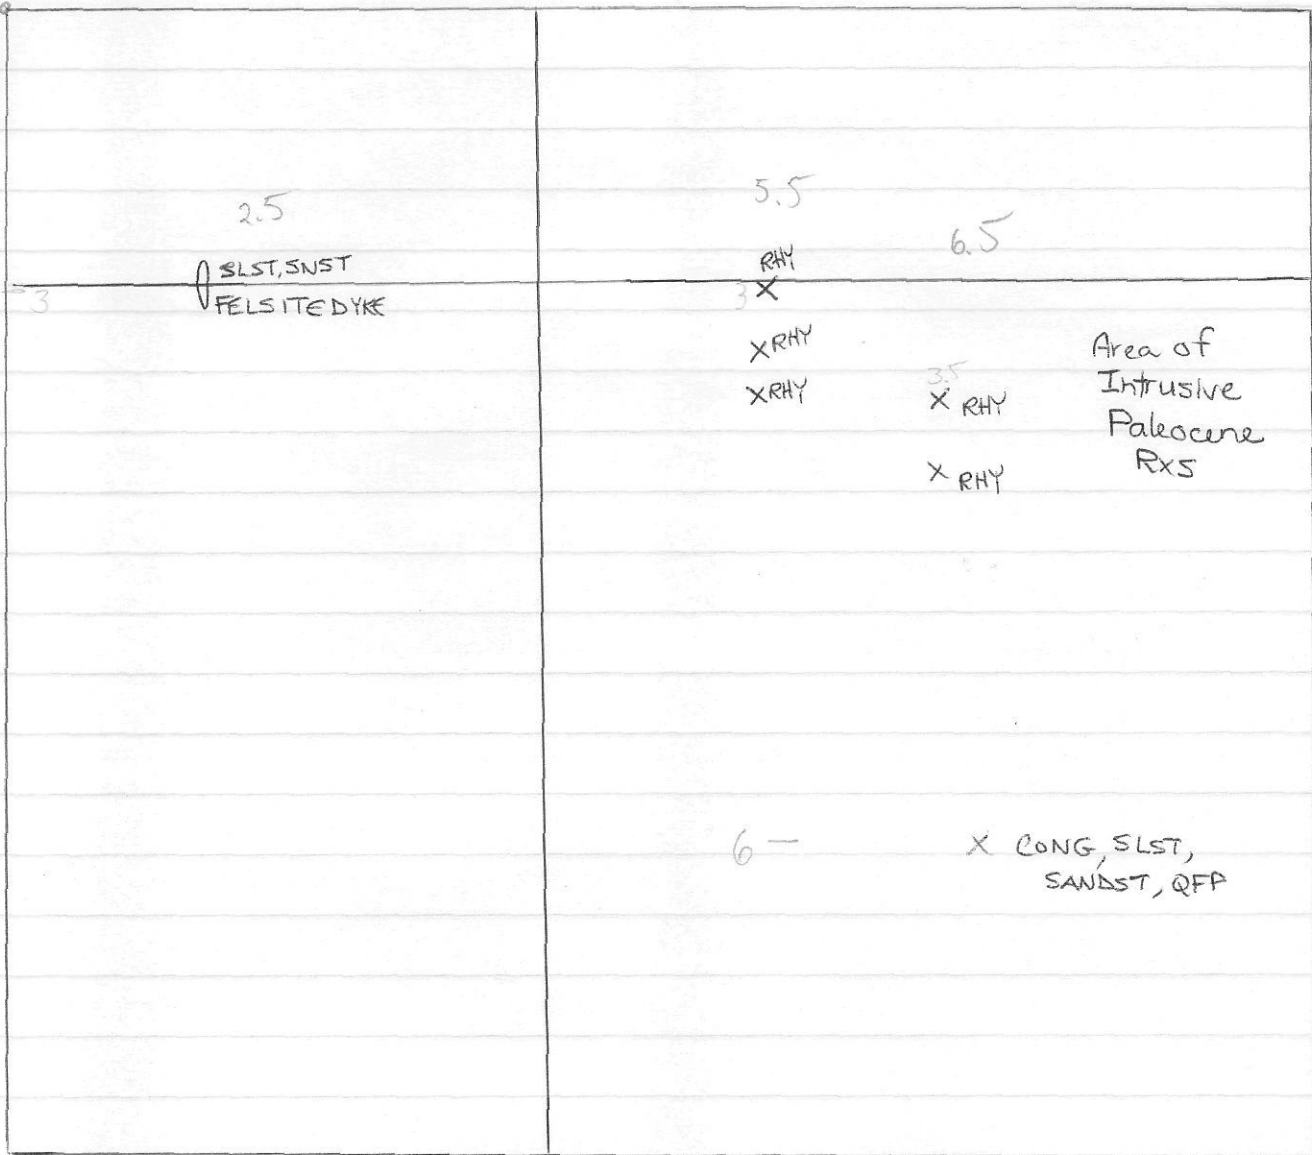 2.5
5.5
6.5
SLST, SNST
FELSITE DYKE
3
RHY
3
RHY
RHY
3.5
RHY
RHY
Area of
Intrusive
Paleocene
RXS
6 —
CONG, SLST,
SANDST, QFP